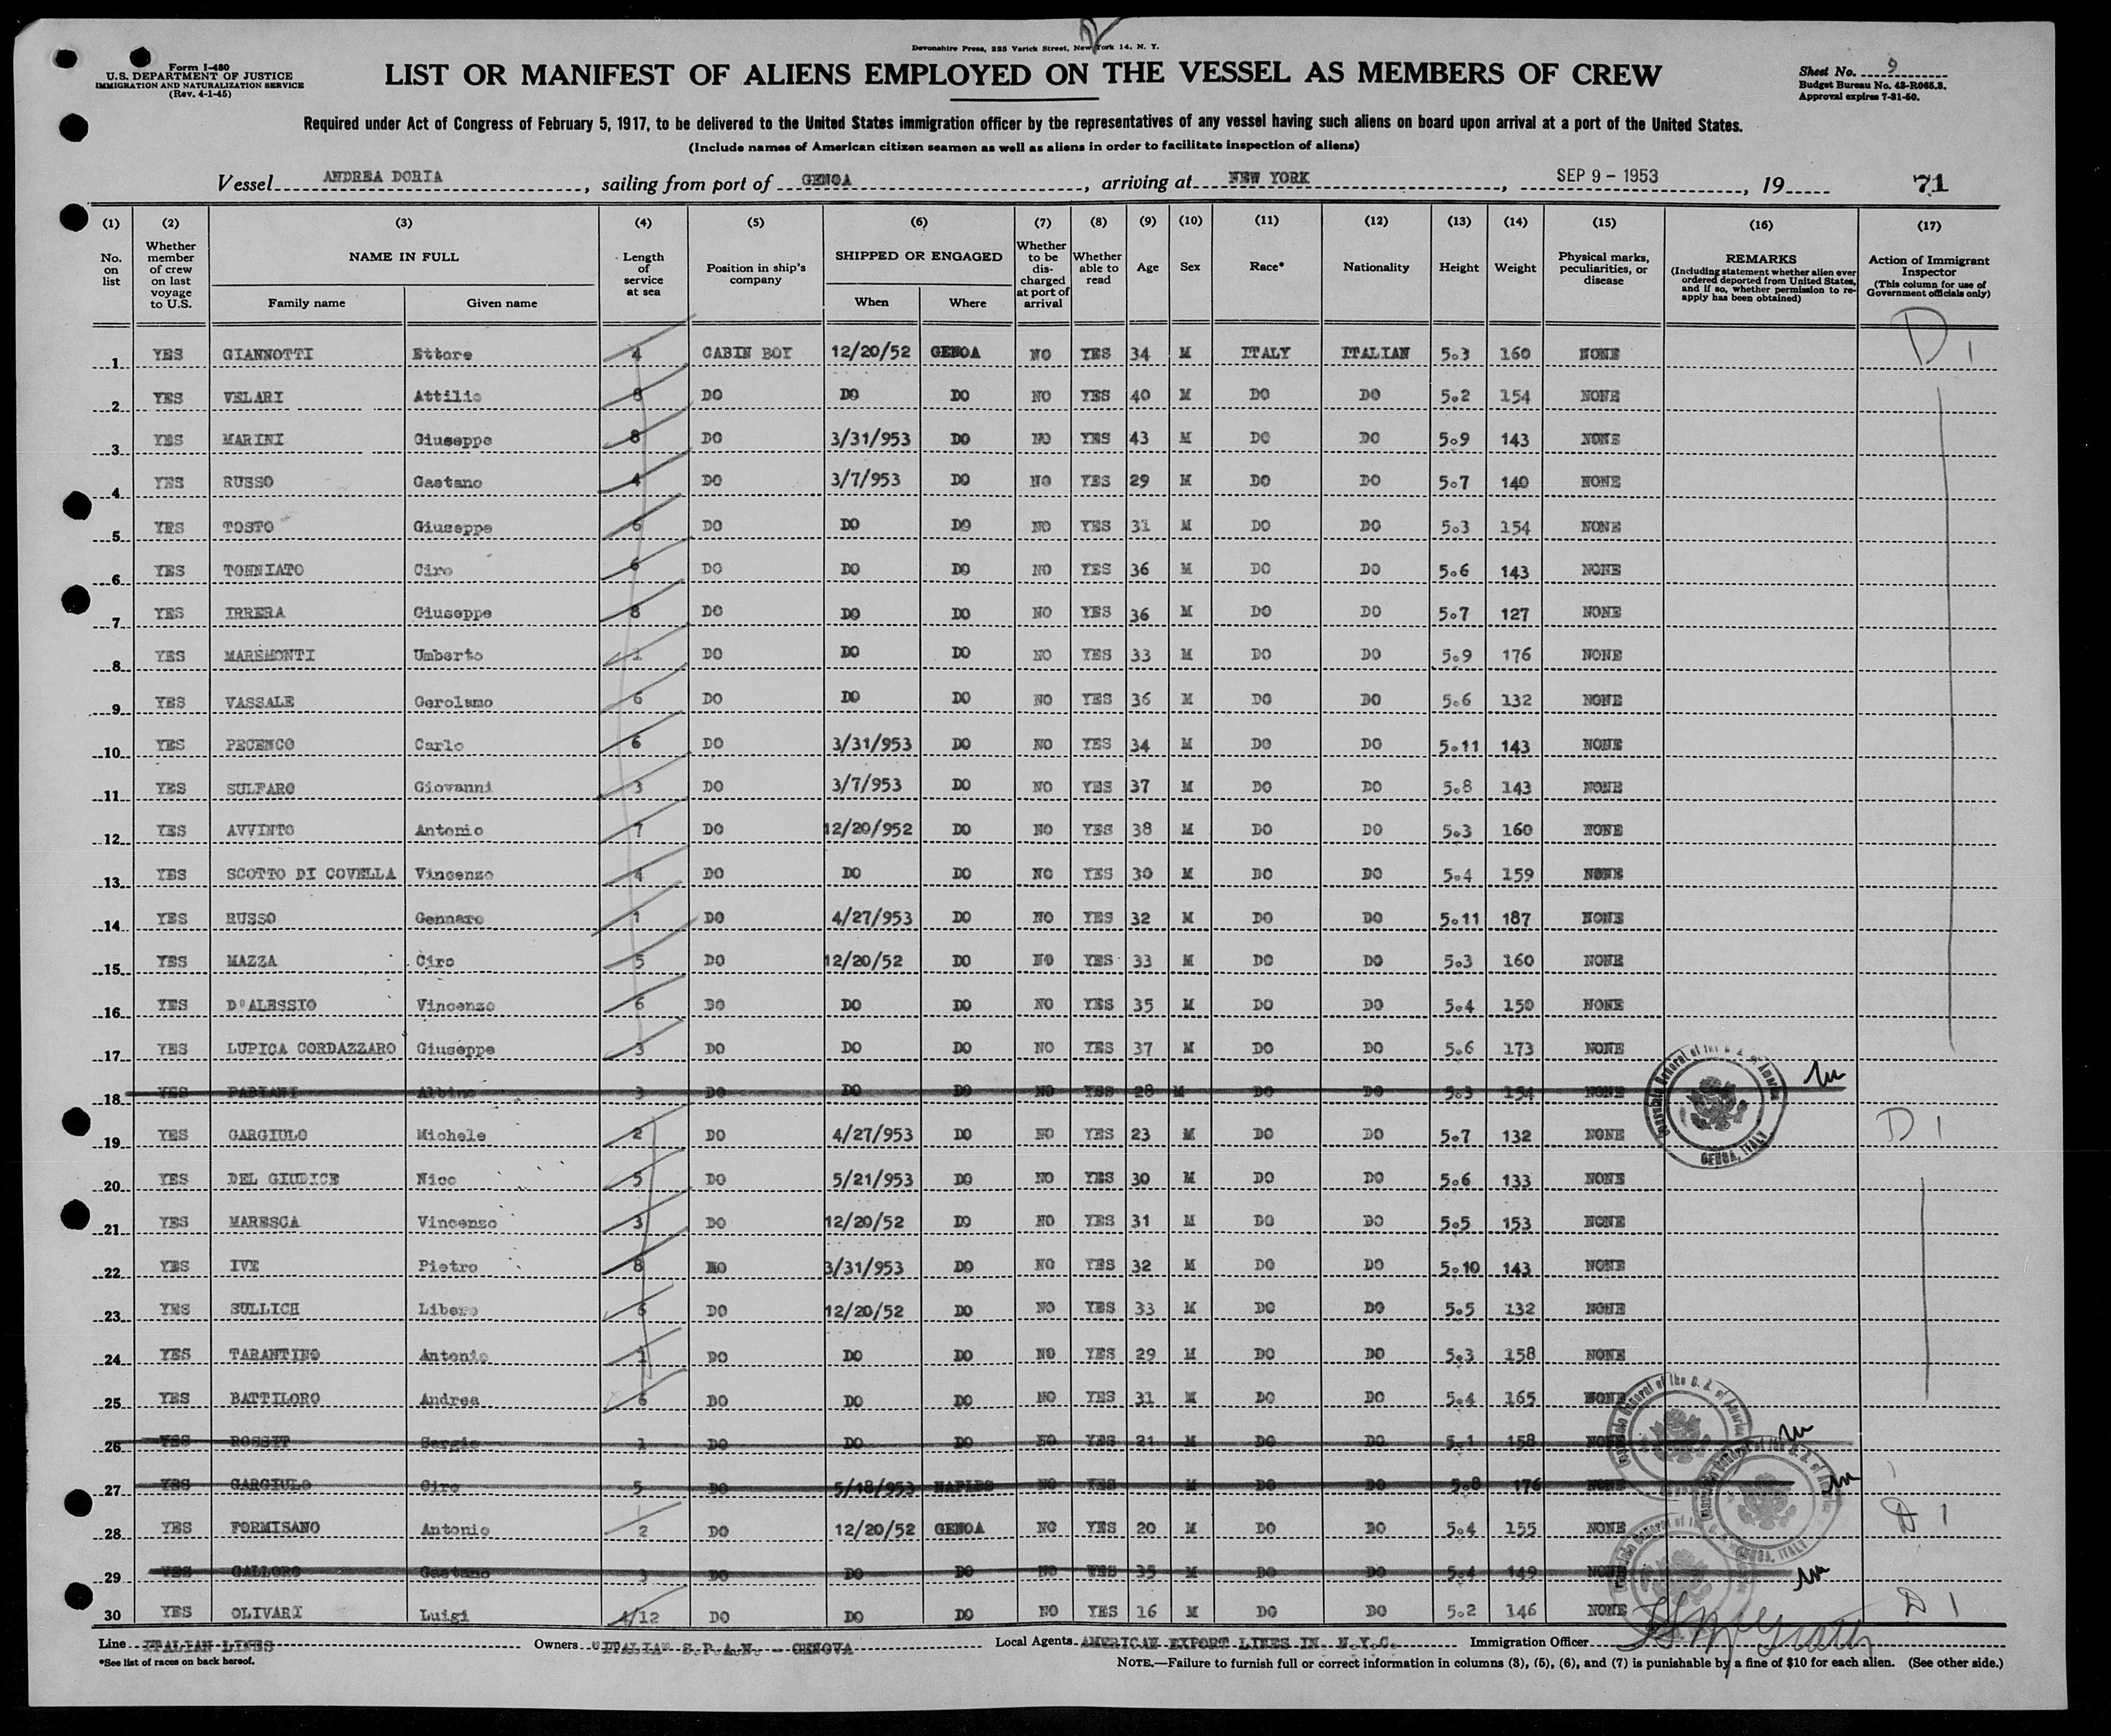 Devonshire Press, 225 Varick Street, New York 14, N. Y.
Form I-480
U.S. DEPARTMENT OF JUSTICE
IMMIGRATION AND NATURALIZATION SERVICE
(Rev. 4-1-45)
LIST OR MANIFEST OF ALIENS EMPLOYED ON THE VESSEL AS MEMBERS OF CREW
Sheet No. 9
Budget Bureau No. 43-R065.3.
Approval expires 7-31-50.
Required under Act of Congress of February 5, 1917, to be delivered to the United States immigration officer by the representatives of any vessel having such aliens on board upon arrival at a port of the United States.
(Include names of American citizen seamen as well as aliens in order to facilitate inspection of aliens)
Vessel ANDREA DORIA, sailing from port of GENOA, arriving at NEW YORK, SEP 9 - 1953, 19 71
(1) (2) (3) (4) (5) (6) (7) (8) (9) (10) (11) (12) (13) (14) (15) (16) (17)
No. on list
Whether member of crew on last voyage to U.S.
NAME IN FULL
Family name Given name
Length of service at sea
Position in ship's company
SHIPPED OR ENGAGED
When Where
Whether to be discharged at port of arrival
Whether able to read
Age
Sex
Race*
Nationality
Height
Weight
Physical marks, peculiarities, or disease
REMARKS
(Including statement whether alien ever ordered deported from United States, and if so, whether permission to re-apply has been obtained)
Action of Immigrant Inspector
(This column for use of Government officials only)
1 YES GIANNOTTI Ettore 4 CABIN BOY 12/20/52 GENOA NO YES 34 M ITALY ITALIAN 5.3 160 NONE D 1
2 YES VELARI Attilio 8 DO DO DO NO YES 40 M DO DO 5.2 154 NONE
3 YES MARINI Giuseppe 8 DO 3/31/953 DO NO YES 43 M DO DO 5.9 143 NONE
4 YES RUSSO Gaetano 4 DO 3/7/953 DO NO YES 29 M DO DO 5.7 140 NONE
5 YES TOSTO Giuseppe 6 DO DO DO NO YES 31 M DO DO 5.3 154 NONE
6 YES TONNIATO Ciro 6 DO DO DO NO YES 36 M DO DO 5.6 143 NONE
7 YES IRRERA Giuseppe 8 DO DO DO NO YES 36 M DO DO 5.7 127 NONE
8 YES MAREMONTI Umberto 1 DO DO DO NO YES 33 M DO DO 5.9 176 NONE
9 YES VASSALE Gerolamo 6 DO DO DO NO YES 36 M DO DO 5.6 132 NONE
10 YES PECENCO Carlo 6 DO 3/31/953 DO NO YES 34 M DO DO 5.11 143 NONE
11 YES SULFARO Giovanni 3 DO 3/7/953 DO NO YES 37 M DO DO 5.8 143 NONE
12 YES AVVINTO Antonio 7 DO 12/20/952 DO NO YES 38 M DO DO 5.3 160 NONE
13 YES SCOTTO DI COVELLA Vincenzo 4 DO DO DO NO YES 30 M DO DO 5.4 159 NONE
14 YES RUSSO Gennaro 1 DO 4/27/953 DO NO YES 32 M DO DO 5.11 187 NONE
15 YES MAZZA Ciro 5 DO 12/20/52 DO NO YES 33 M DO DO 5.3 160 NONE
16 YES D'ALESSIO Vincenzo 6 DO DO DO NO YES 35 M DO DO 5.4 150 NONE
17 YES LUPICA CORDAZZARO Giuseppe 3 DO DO DO NO YES 37 M DO DO 5.6 173 NONE
18 YES FABIANI Albino 3 DO DO DO NO YES 28 M DO DO 5.3 154 NONE
19 YES GARGIULO Michele 2 DO 4/27/953 DO NO YES 23 M DO DO 5.7 132 NONE D 1
20 YES DEL GIUDICE Nico 5 DO 5/21/953 DO NO YES 30 M DO DO 5.6 133 NONE
21 YES MARESCA Vincenzo 3 DO 12/20/52 DO NO YES 31 M DO DO 5.5 153 NONE
22 YES IVE Pietro 8 DO 3/31/953 DO NO YES 32 M DO DO 5.10 143 NONE
23 YES SULLICH Libero 6 DO 12/20/52 DO NO YES 33 M DO DO 5.5 132 NONE
24 YES TARANTINO Antonio 1 DO DO DO NO YES 29 M DO DO 5.3 158 NONE
25 YES BATTILORO Andrea 6 DO DO DO NO YES 31 M DO DO 5.4 165 NONE
26 YES ROSSIT Sergio 1 DO DO DO NO YES 21 M DO DO 5.1 158 NONE
27 YES GARGIULO Ciro 5 DO 5/18/953 NAPLES NO YES M DO DO 5.8 176 NONE
28 YES FORMISANO Antonio 2 DO 12/20/52 GENOA NO YES 20 M DO DO 5.4 155 NONE D 1
29 YES GALLORO Gaetano 3 DO DO DO NO YES 35 M DO DO 5.4 149 NONE
30 YES OLIVARI Luigi 4/12 DO DO DO NO YES 16 M DO DO 5.2 146 NONE D 1
Consulate General of the U. S. of America
GENOA, ITALY
Line ITALIAN LINES Owners "ITALIA" S.P.A.N. - GENOVA Local Agents AMERICAN EXPORT LINES IN. N.Y.C. Immigration Officer
*See list of races on back hereof.
NOTE.—Failure to furnish full or correct information in columns (3), (5), (6), and (7) is punishable by a fine of $10 for each alien. (See other side.)